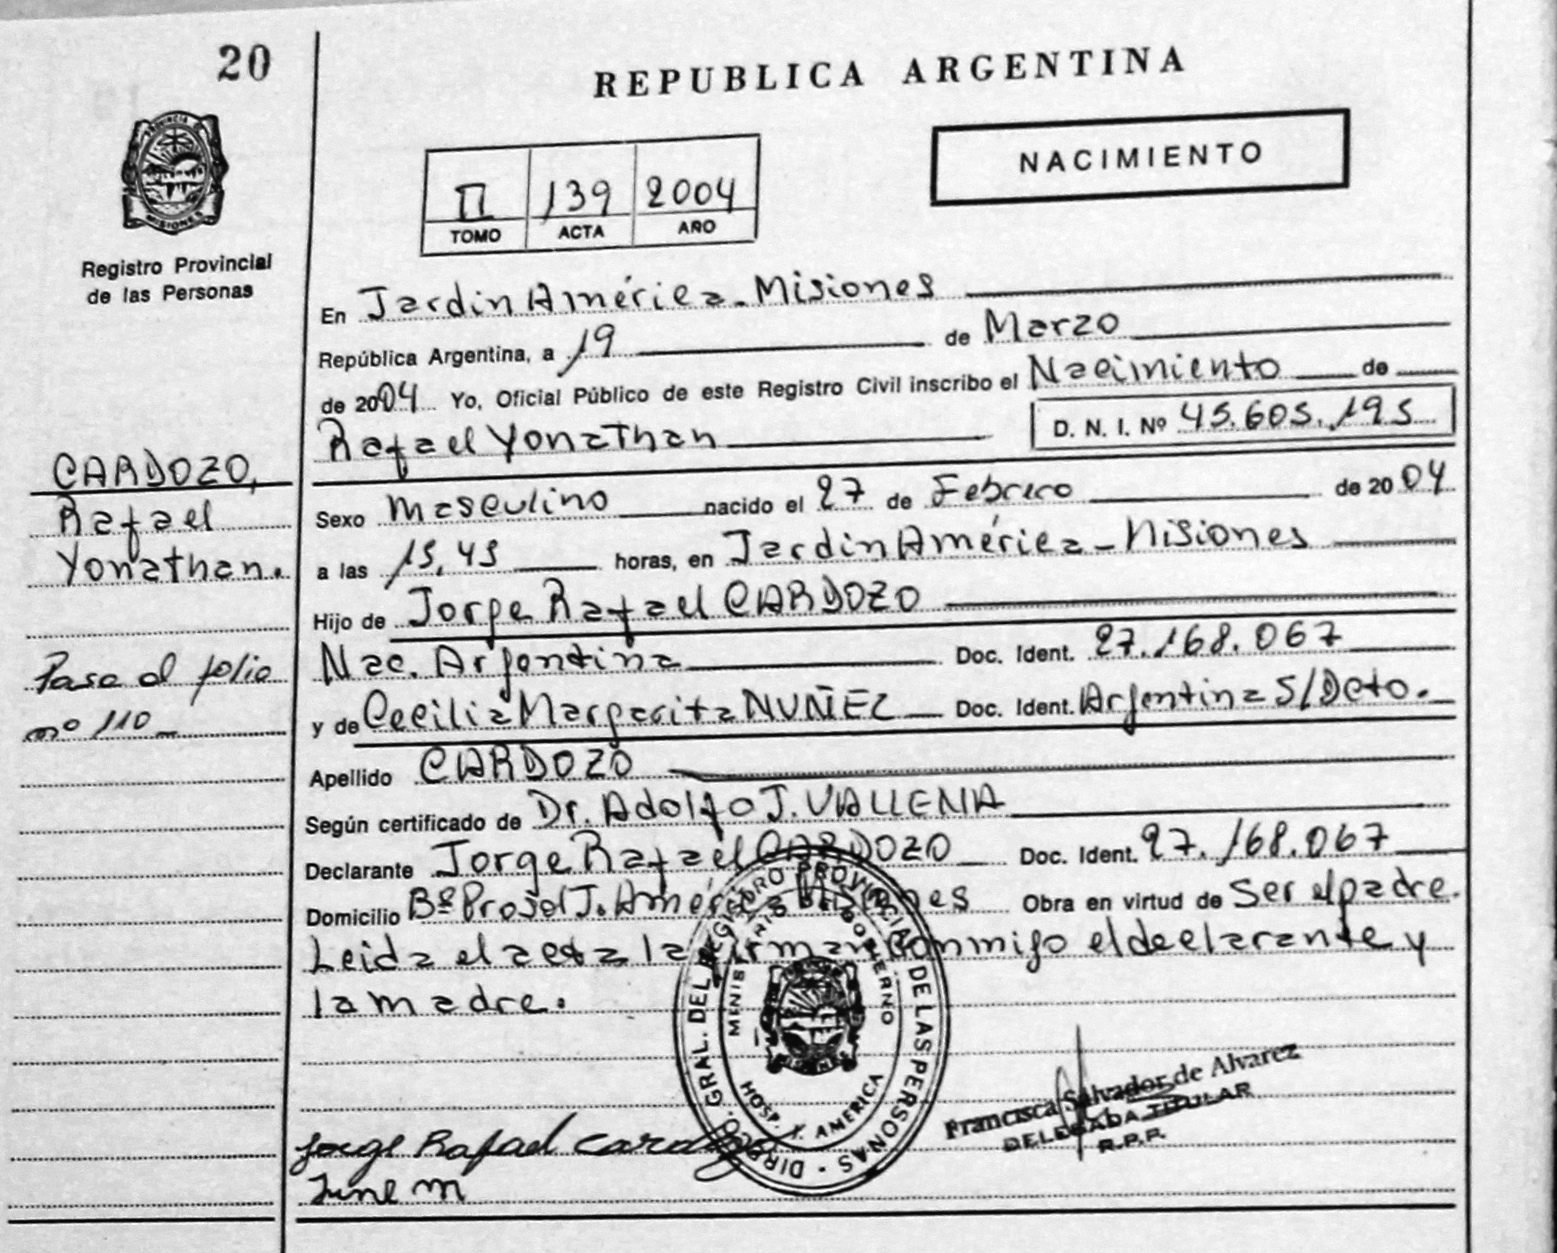 20
REPUBLICA ARGENTINA
NACIMIENTO
II 139 2004
TOMO ACTA AÑO
PROVINCIA D
MISIONES
Registro Provincial
de las Personas
En Jardín América - Misiones
República Argentina, a 19 de Marzo
de 2004 Yo, Oficial Público de este Registro Civil inscribo el Nacimiento de
Rafael Yonathan D. N. I. Nº 45.605.195
CARDOZO,
Rafael
Yonathan.
Pasa al folio
nº 110
Sexo Masculino nacido el 27 de Febrero de 2004
a las 15,45 horas, en Jardín América - Misiones
Hijo de Jorge Rafael CARDOZO
Nac. Argentina Doc. Ident. 27.168.067
y de Cecilia Margarita NUÑEZ Doc. Ident. Argentina S/Dcto.
Apellido CARDOZO
Según certificado de Dr. Adolfo J. VALLENA
Declarante Jorge Rafael CARDOZO Doc. Ident. 27.168.067
Domicilio Bº Prosol J. América Misiones Obra en virtud de Ser el padre.
Leida el acta la firman conmigo el declarante y
la madre.
DIRECC. GRAL. DEL REGISTRO PROVINCIAL DE LAS PERSONAS
MINISTERIO GOBIERNO
HOSP. J. AMERICA
Francisca Salvador de Alvarez
DELEGADA TITULAR
R.P.P.
Jorge Rafael Cardozo